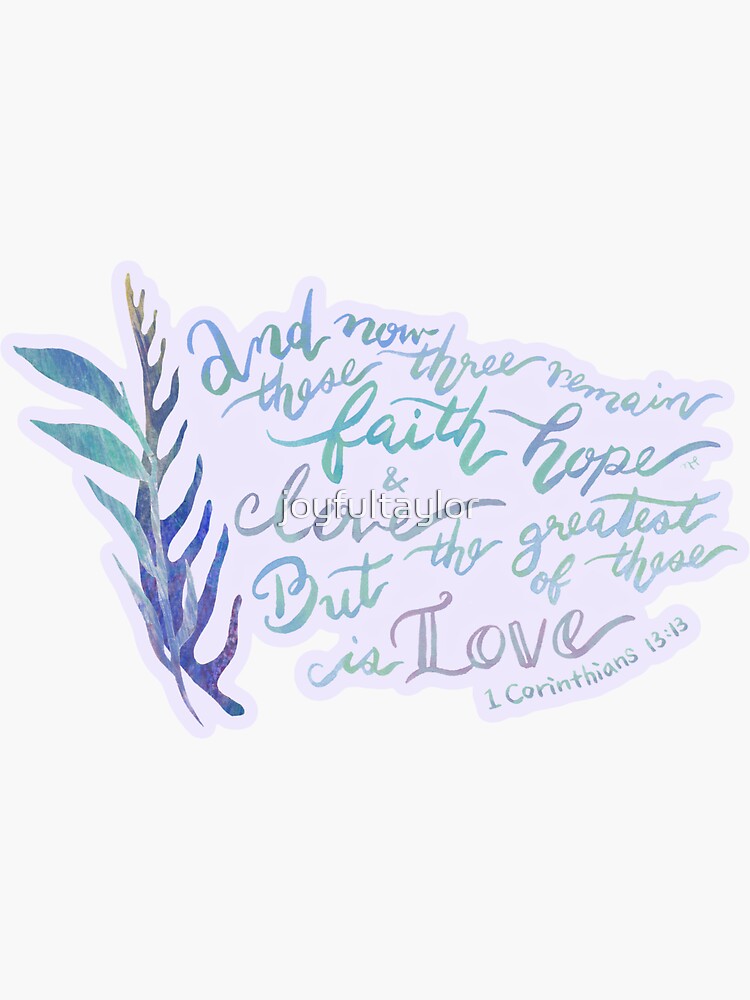 And now
these three remain
faith hope
& love
joyfultaylor
But the greatest
of these
is Love
1 Corinthians 13:13